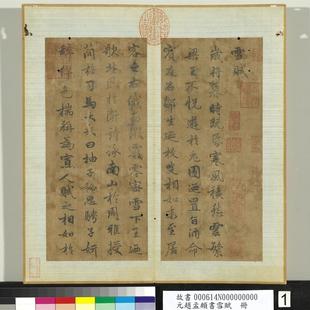 雪賦
歲將暮時既昬寒風積愁雲繁
梁王不悅遊於兔園迺置旨酒命
賓友召鄒生延枚叟相如末至居
客之右俄而微霰零密雪下王迺
歌北風於衛詩詠南山於周雅授
簡於司馬大夫曰抽子秘思騁子妍
辭侔色揣稱為寡人賦之相如於
故書000614N000000000
元趙孟頫書雪賦 冊
1